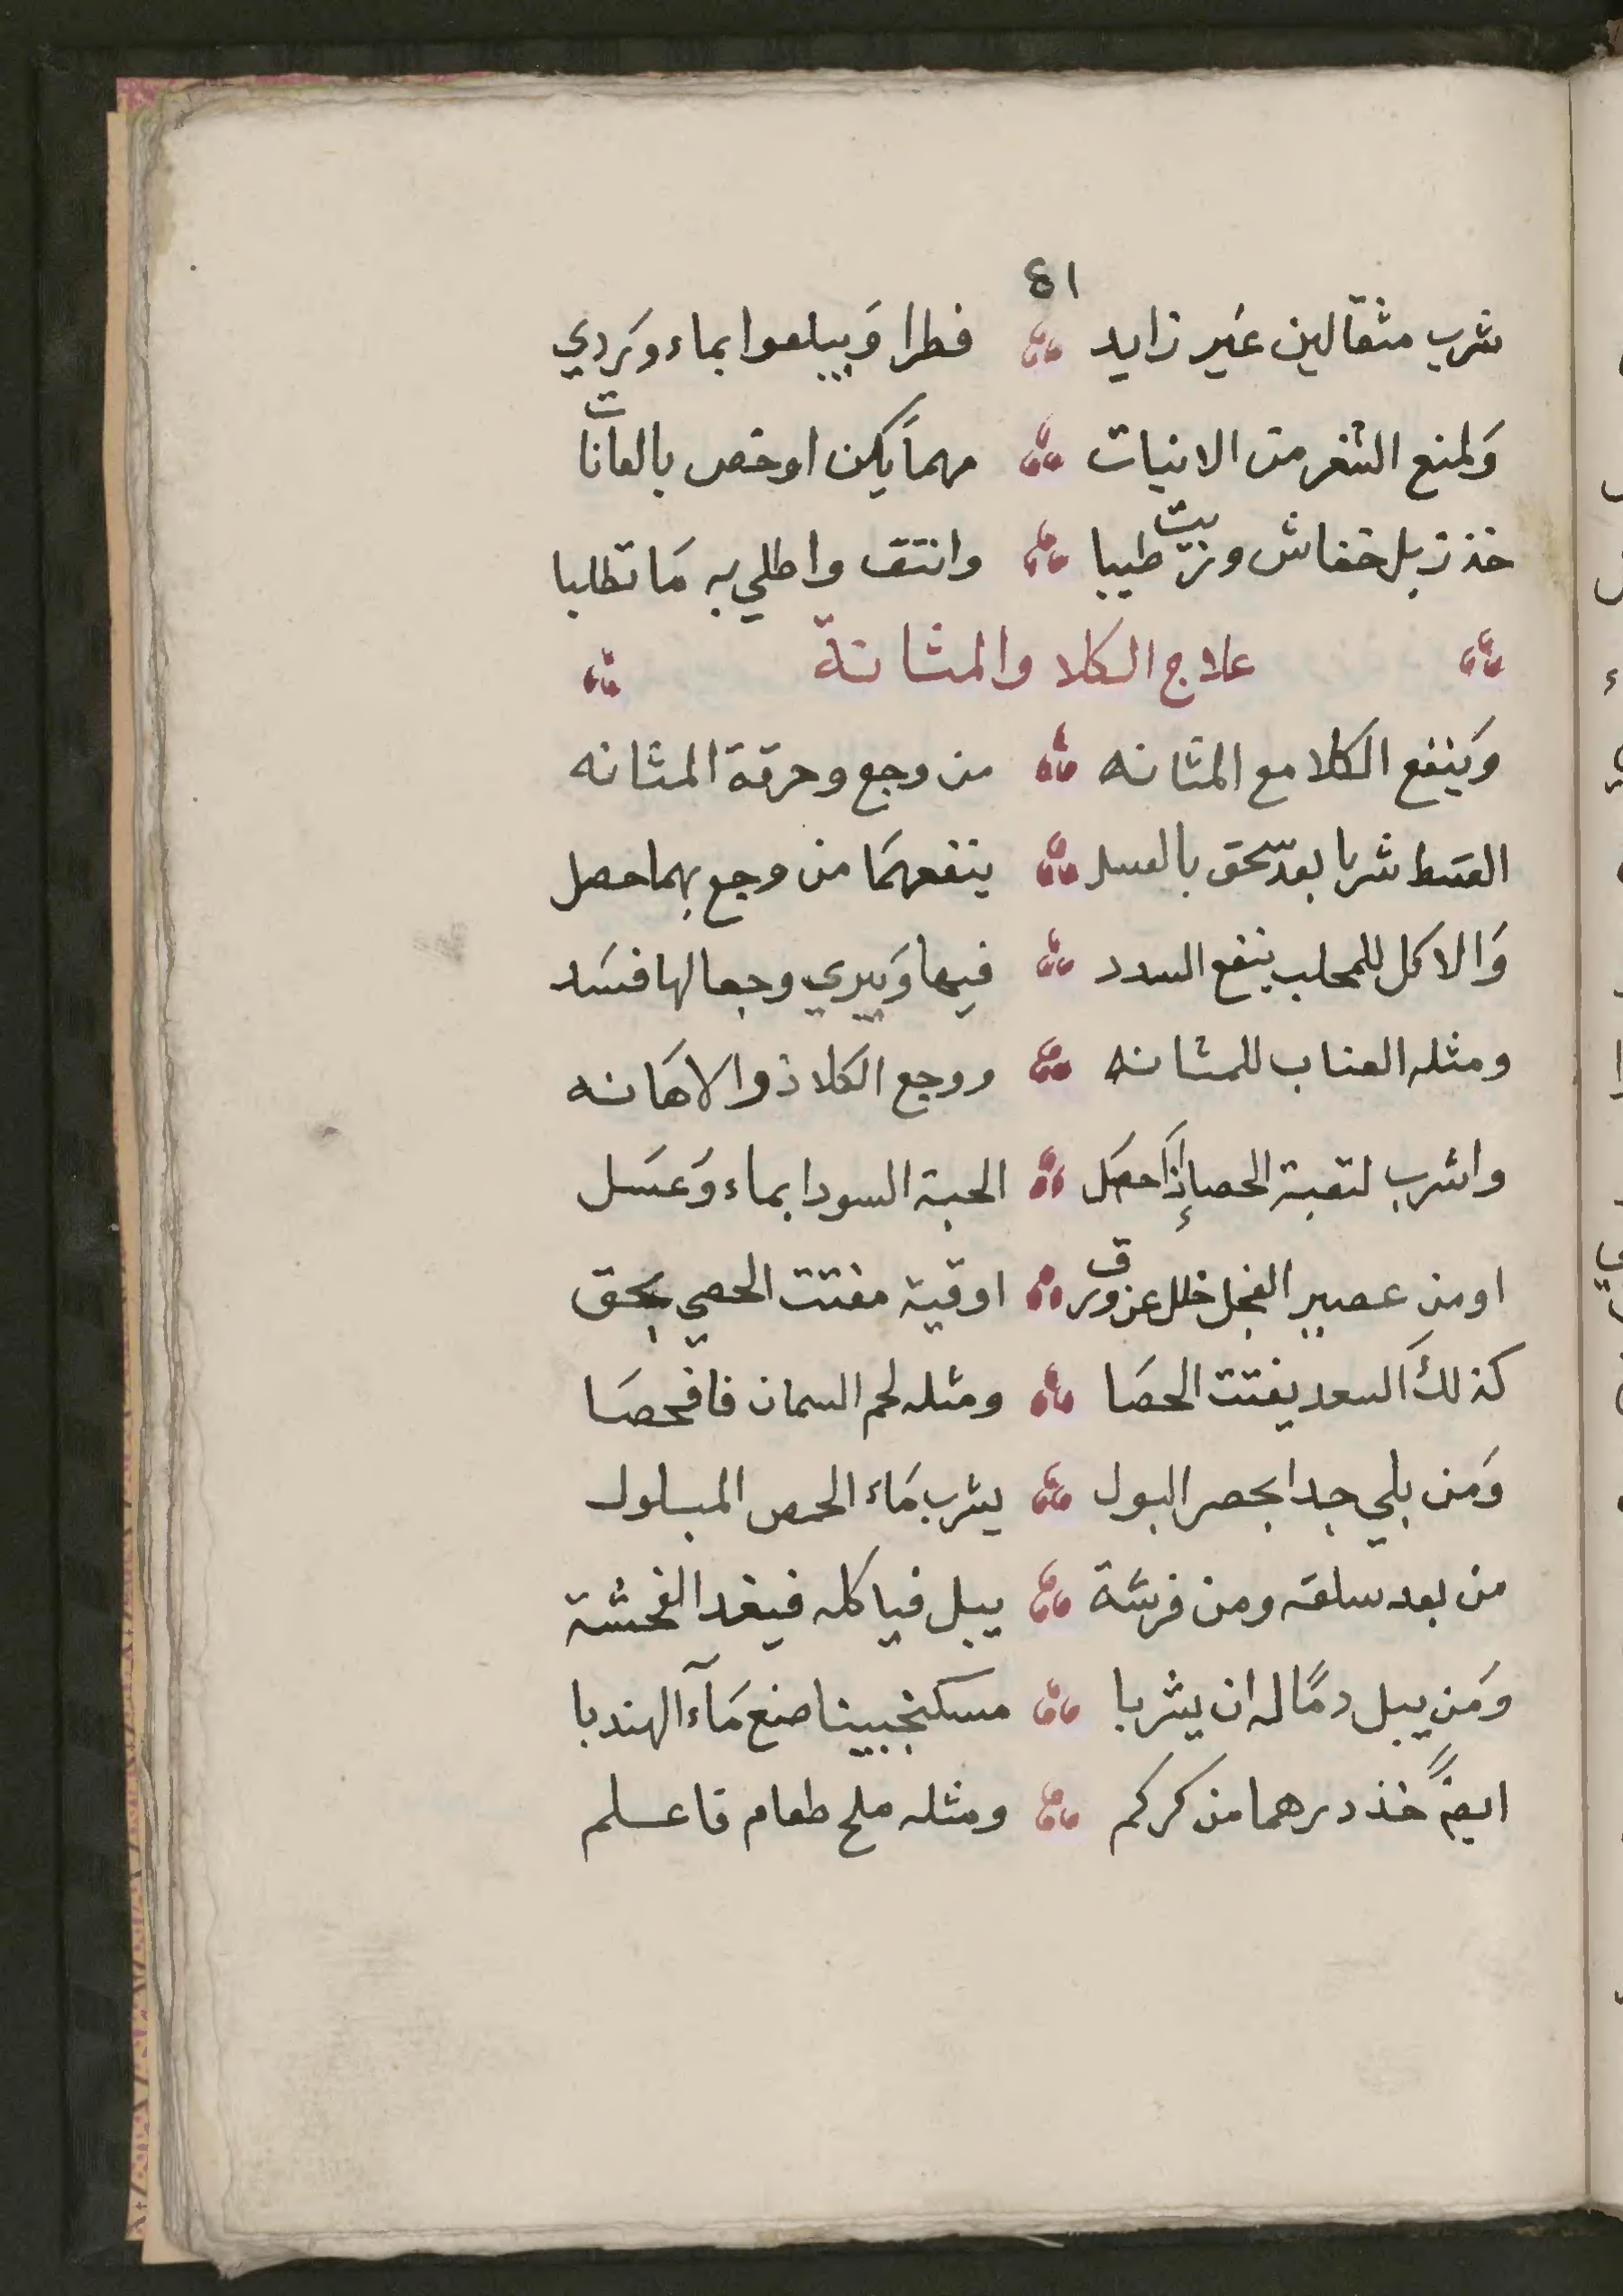 ٤١
شرب مثقالين غير زايد فطرا وَيبلعوا بماء وَردي
وَلمنع الشعر من الانبات مهمَا يكن اوخص بالعانات
خذ زبل خفاش وزيت طيبا وانتف واطلي به مَا تطلبا
علاج الكلا والمثانة
وَينفع الكلا مع المثانه من وجع وحرقة المثانه
القسط شربا بعد سحق بالعسل ينفعهمَا من وجع بهما حصل
وَالاكل للمحلب ينفع السدد فيها وَيبري وجعا لها فسَد
ومثله العناب للمثانه ووجع الكلا ذوالاهَانه
واشرب لتقبة الحصا إذَا حصَل الحبة السودا بماء وَعسَل
اومن عصير الفجل خلل عزورق اوقية مفتت الحصي بحق
كذلكَ السعد يفتت الحصَا ومثله لحم السمان فافحصَا
وَمن بلي جدا بحصر البول يشرب مَاء الحمص المبلول
من بعد سلقه ومن فرشة يبل فياكله فيغدا الفحشة
وَمن يبل دمًا له ان يشربا مسكنجبينا صنع مَآء الهندبا
ايضًا خذ درهما من كركم ومثله ملح طعام فاعلم